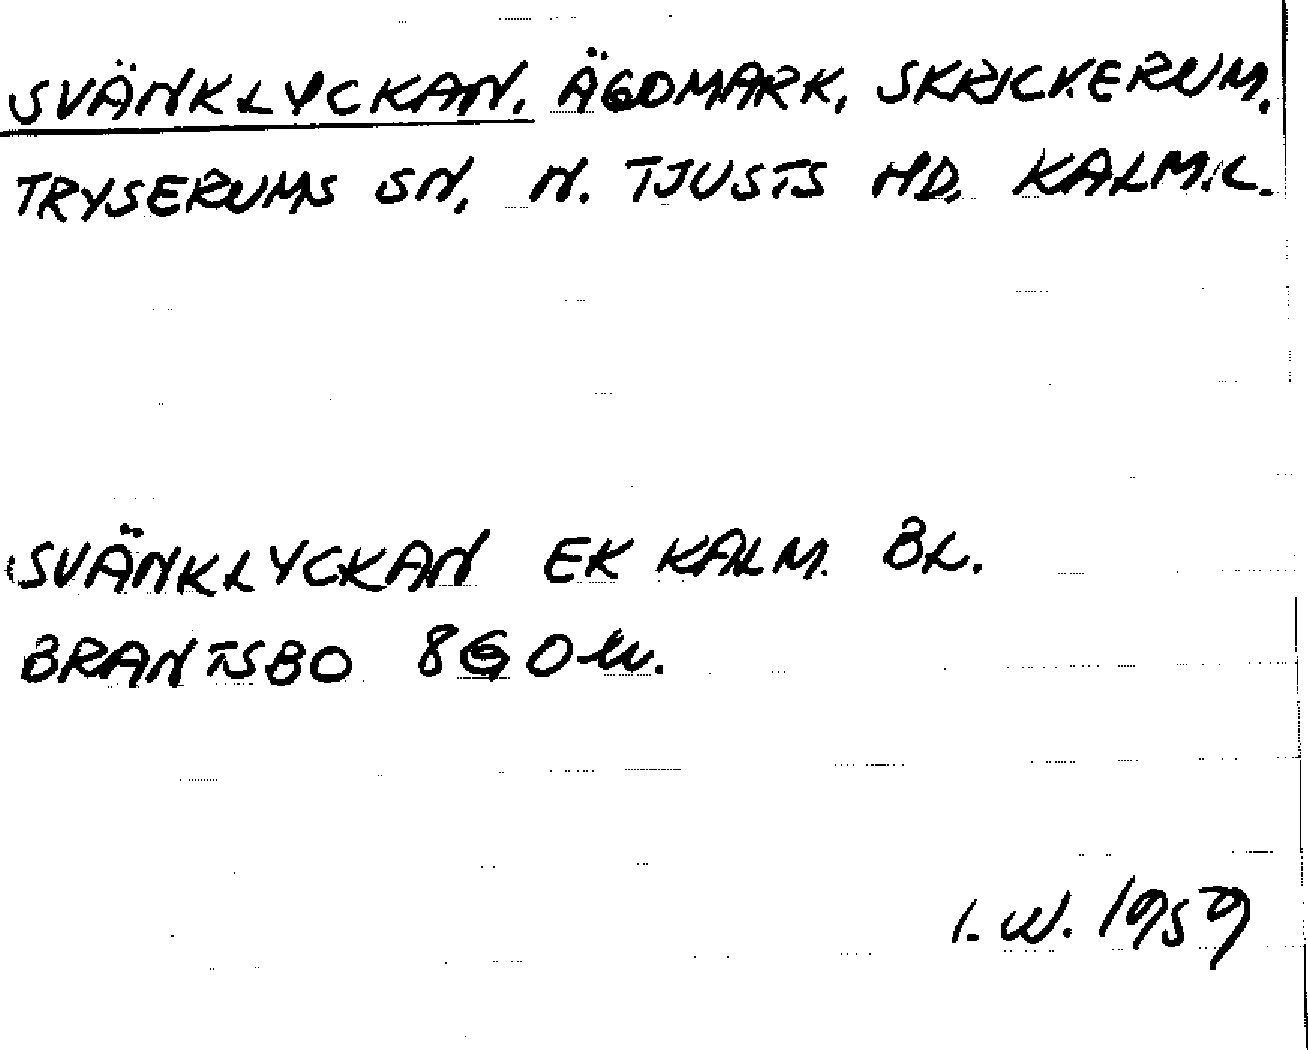 SVÄNKLYCKAN. ÄGOMARK, SKRICKERUM.
TRYSERUMS SN. N. TJUSTS HD. KALM.L.
SVÄNKLYCKAN EK KALM. BL.
BRANTSBO 8G0
I.W. 1959